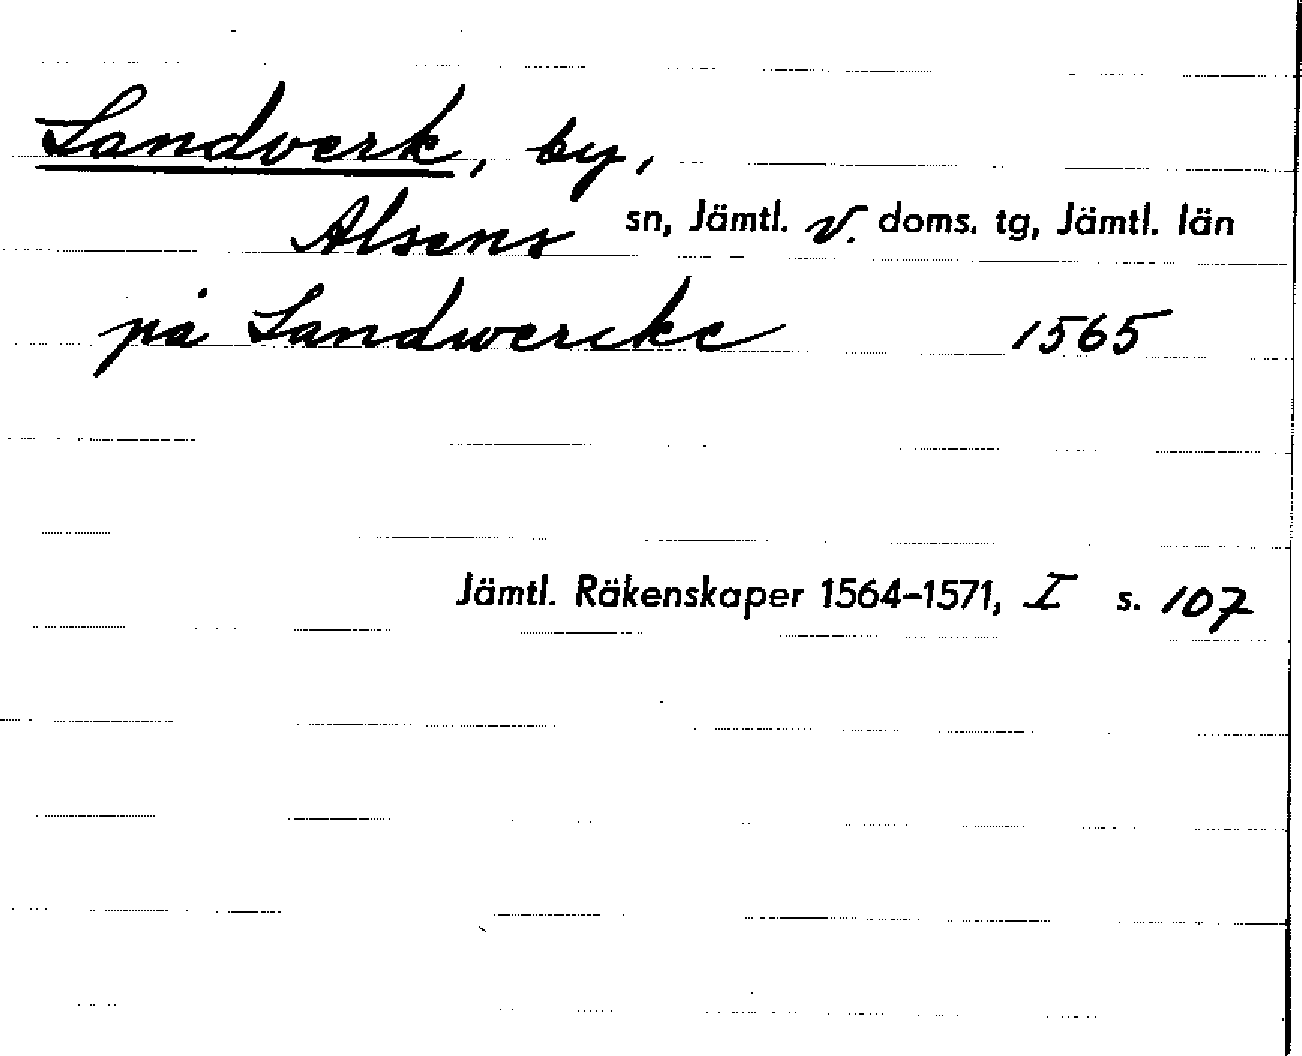 Landverk, by,
Alsens sn, Jämtl. v. doms. tg, Jämtl. län
på Landwercke 1565
Jämtl. Räkenskaper 1564-1571, I s. 107